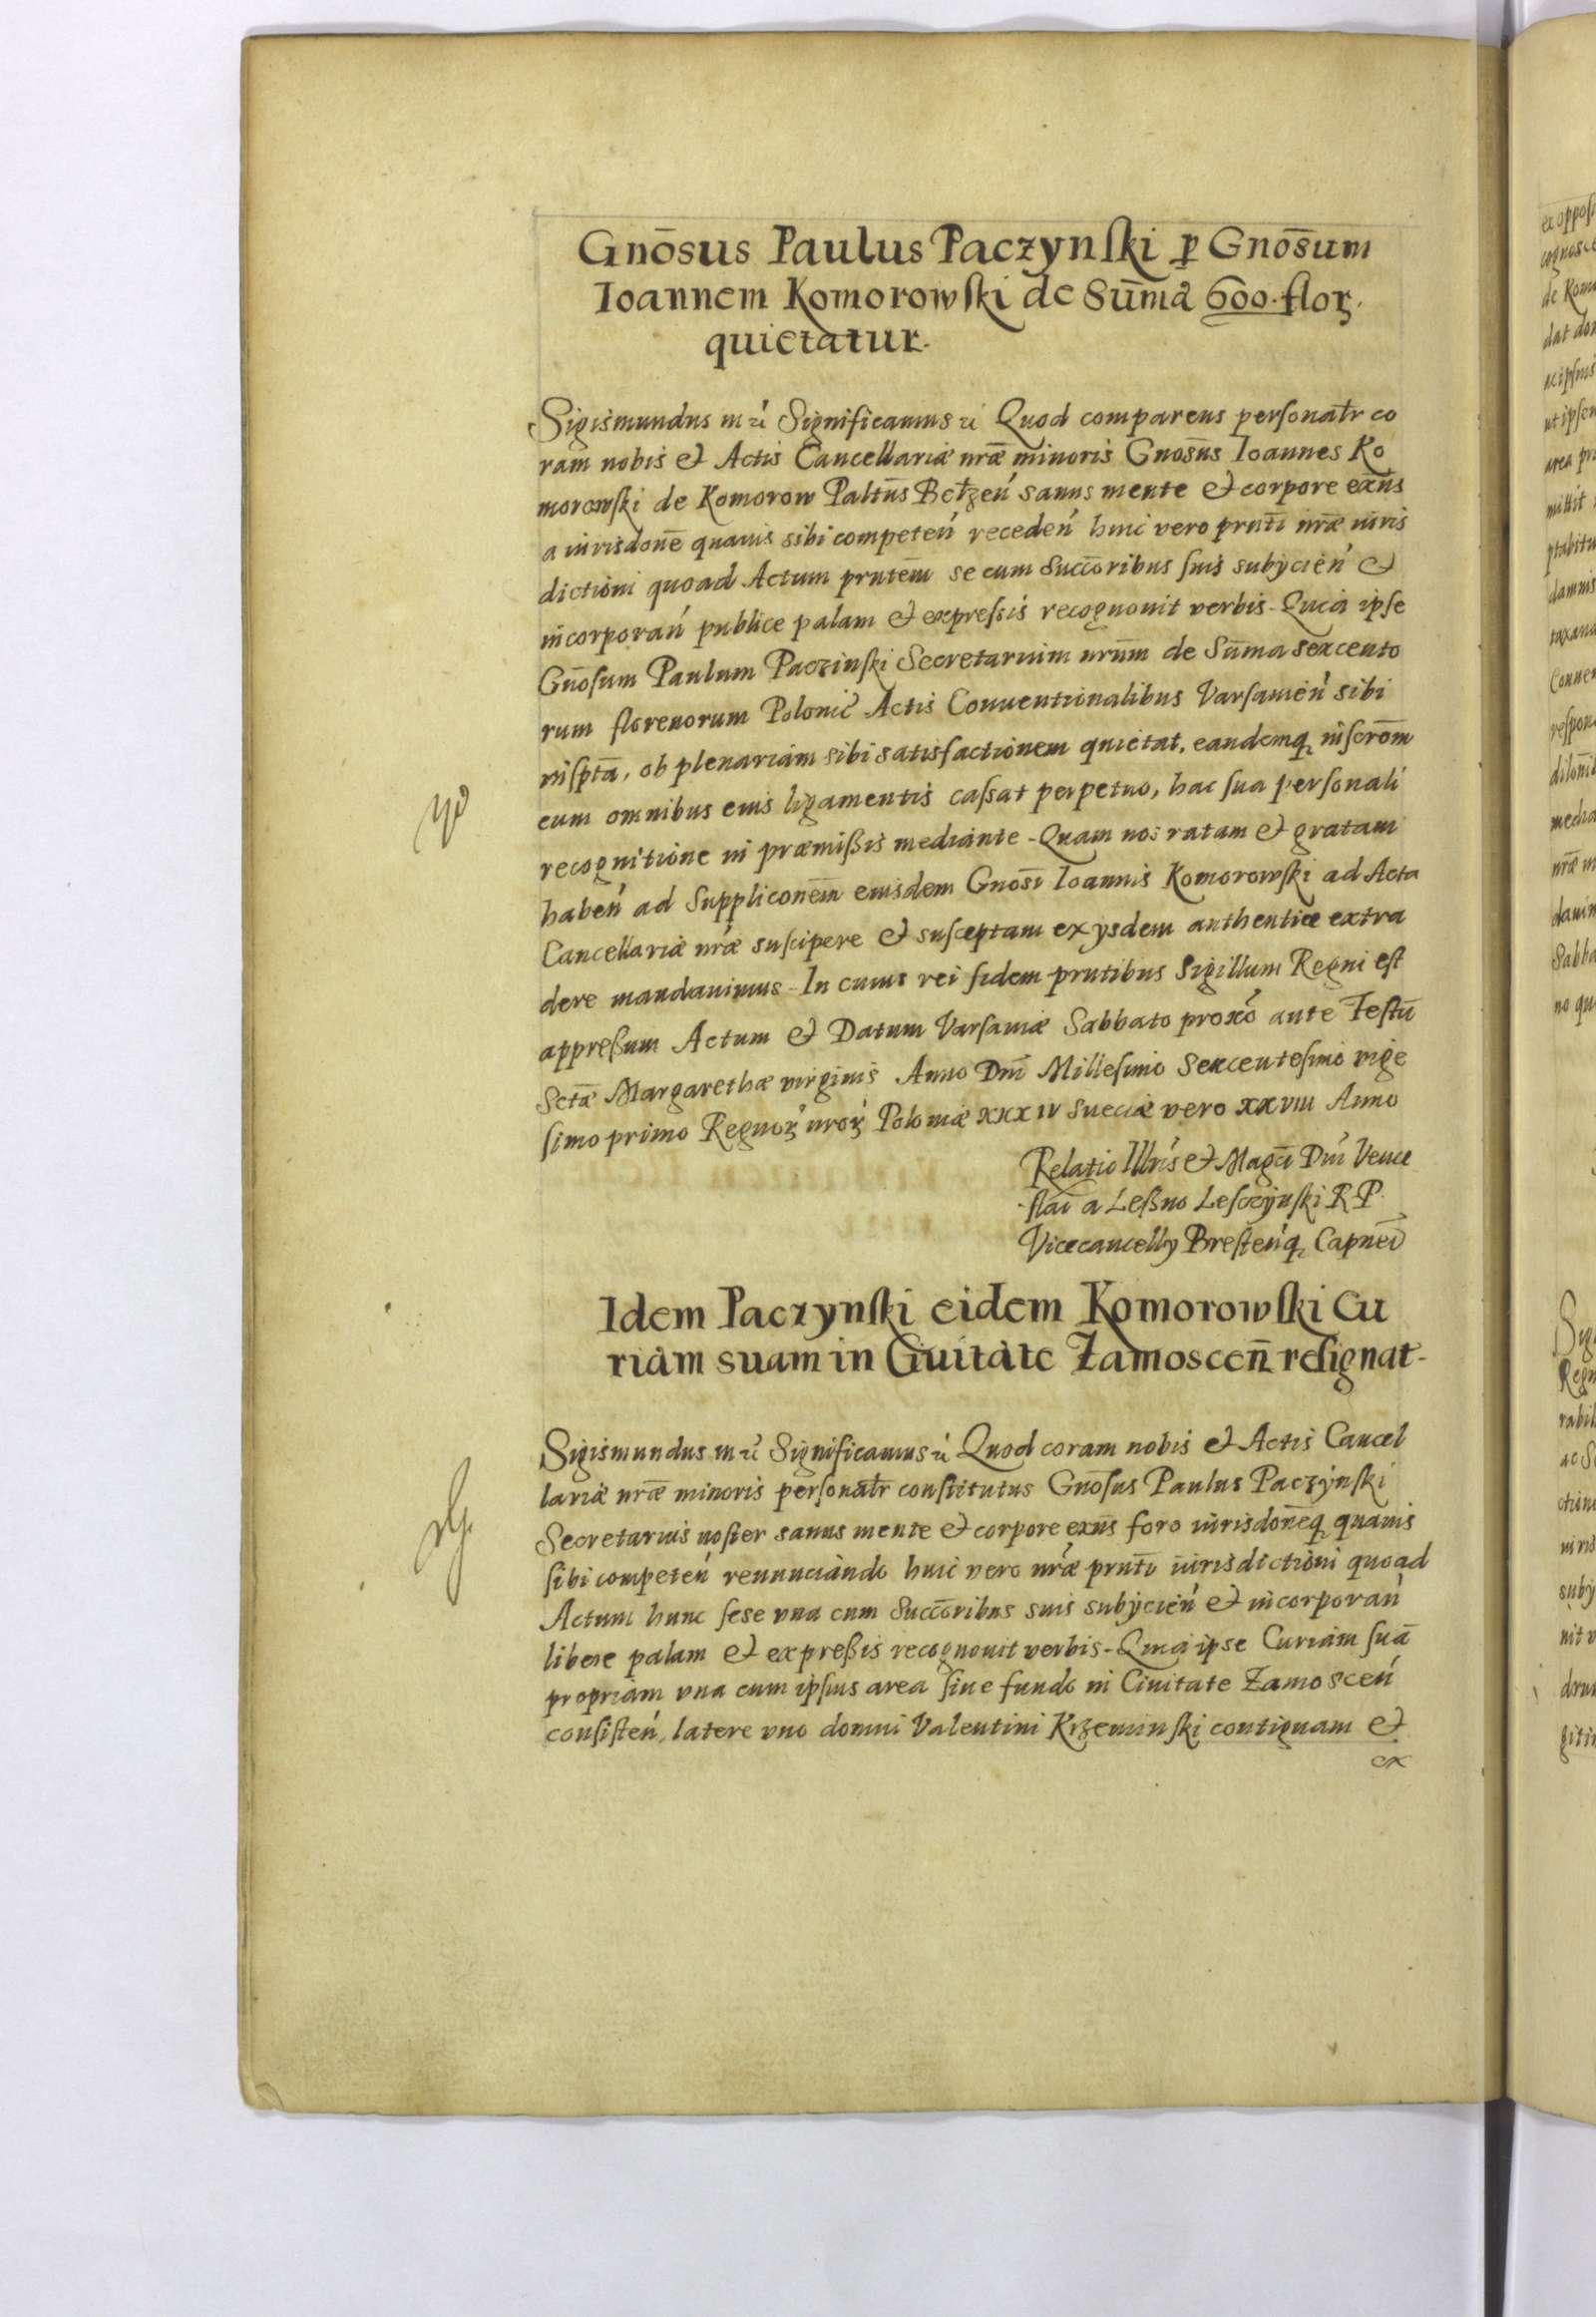 Gnōsus Paulus Paczynſki ꝑ Gnoſ̄um
Ioannem Komorowſki de Sum̄a 600. floꝝ.
quietatur.
Sigismundus III ꝛć Significamus ꝛć Quod comparens personalr̄ co
ram nobis et Actis Cancellariæ nr̄æ minoris Gnosūs Ioannes Ko
morowſki de Komorow Paltn̄s Bełzeń sanus mente et corpore exn̄s
a iurisdonē quauis sibi competeń recedeń huic vero prnti nr̄æ iuris
dictioni quoad Actum prntem̄ se cum Succōribus ſuis subycień et
incorporań publice palam et expreſsis recognouit verbis. Quia ipſe
Gnōſum Paulum Paczinſki Secretarium nrūm de Sum̄a sexcento
rum florenorum Polonić Actis Conuentionalibus Varsauień sibi
inſptā, ob plenariam sibi satisfactionem quietat, eandemqꝫ inſcrōm
cum omnibus eius ligamentis caſsat perpetuo, hac ſua perſonali
recognitione in præmiſsis mediante. Quam nos ratam et gratam
habeń ad Suppliconēm eiusdem Gnosī Ioannis Komorowſki ad Acta
Cancellariæ nr̄æ suſcipere et suſceptam ex ysdem authentice extra
dere mandauimus. In cuius rei fidem prntibus Sigillum Regni eſt
appreſsum Actum et Datum Varſauiæ Sabbato proxō ante Feſtū
Sctæ Margarethæ virginis Anno Dnī Milleſimo Sexcenteſimo vige
ſimo primo Regnoꝝ nroꝝ Poloniæ XXXIV Sueciæ vero XXVIII Anno
Relatio Illrīs et Magcī Dnī Vence
ſlai a Leſsno Leſczÿnſki R P
Vicecancellÿ Breſteńqꝫ Capnei
Idem Paczynſki eidem Komorowſki Cu
riam suam in Ciuitate Zamoscen̄ reſignat.
Sigismundus III ꝛć Significamus ꝛć Quod coram nobis et Actis Cancel
lariæ nr̄æ minoris perſonalr̄ conſtitutus Gnōſus Paulus Paczÿnſki
Secretarius noſter sanus mente et corpore exn̄s foro iurisdonēqꝫ quauis
ſibi competeń renunciando huic vero nr̄æ prntī iurisdictioni quoad
Actum hunc ſese vna cum Succōribus suis subÿcień et incorporań
libere palam et expreſsis recognouit verbis. Quia ipse Curiam ſuā
propriam vna cum ipſius area ſiue fundo in Ciuitate Zamosceń
conſiſteń, latere vno domui Valentini Krzeminſki contiguam et
ex